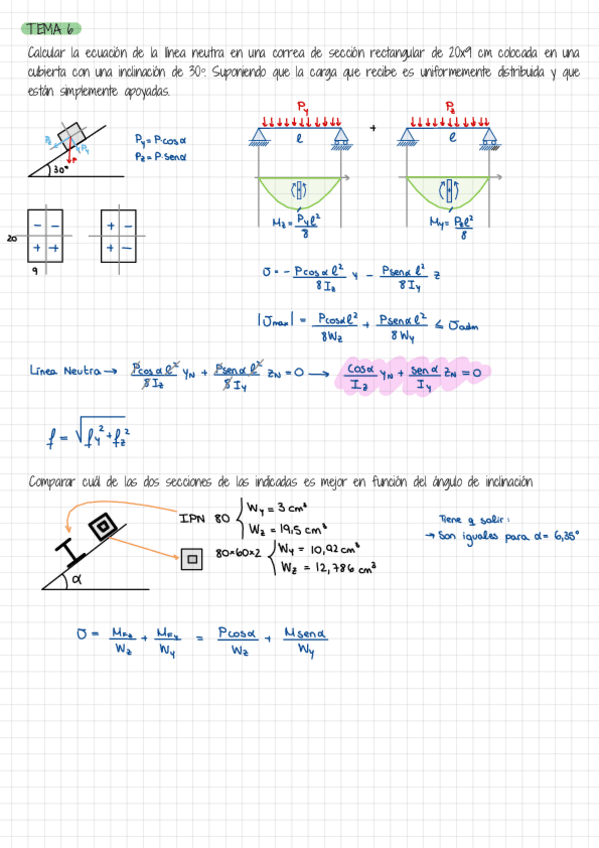 TEMA 6
Calcular la ecuación de la línea neutra en una correa de sección rectangular de 20x9 cm colocada en una
cubierta con una inclinación de 30º. Suponiendo que la carga que recibe es uniformemente distribuida y que
están simplemente apoyadas.
Py = P·cosα
Pz = P·senα
P
30°
Py
ℓ
+
Pz
ℓ
Mz = Pyℓ²/8
My = Pzℓ²/8
20
9
- -
+ +
+ -
+ -
σ = - Pcosαℓ²/8Iz y - Psenαℓ²/8Iy z
|σmax| = Pcosαℓ²/8Wz + Psenαℓ²/8Wy ≤ σadm
Línea Neutra → Pcosαℓ²/8Iz yN + Psenαℓ²/8Iy zN = 0 → cosα/Iz yN + senα/Iy zN = 0
f = √fy² + fz²
Comparar cuál de las dos secciones de las indicadas es mejor en función del ángulo de inclinación
IPN 80 { Wy = 3 cm³
Wz = 19,5 cm³
80×60×2 { Wy = 10,92 cm³
Wz = 12,786 cm³
Tiene q salir:
→ Son iguales para α = 6,35°
α
σ = MFz/Wz + MFy/Wy = Pcosα/Wz + Msenα/Wy